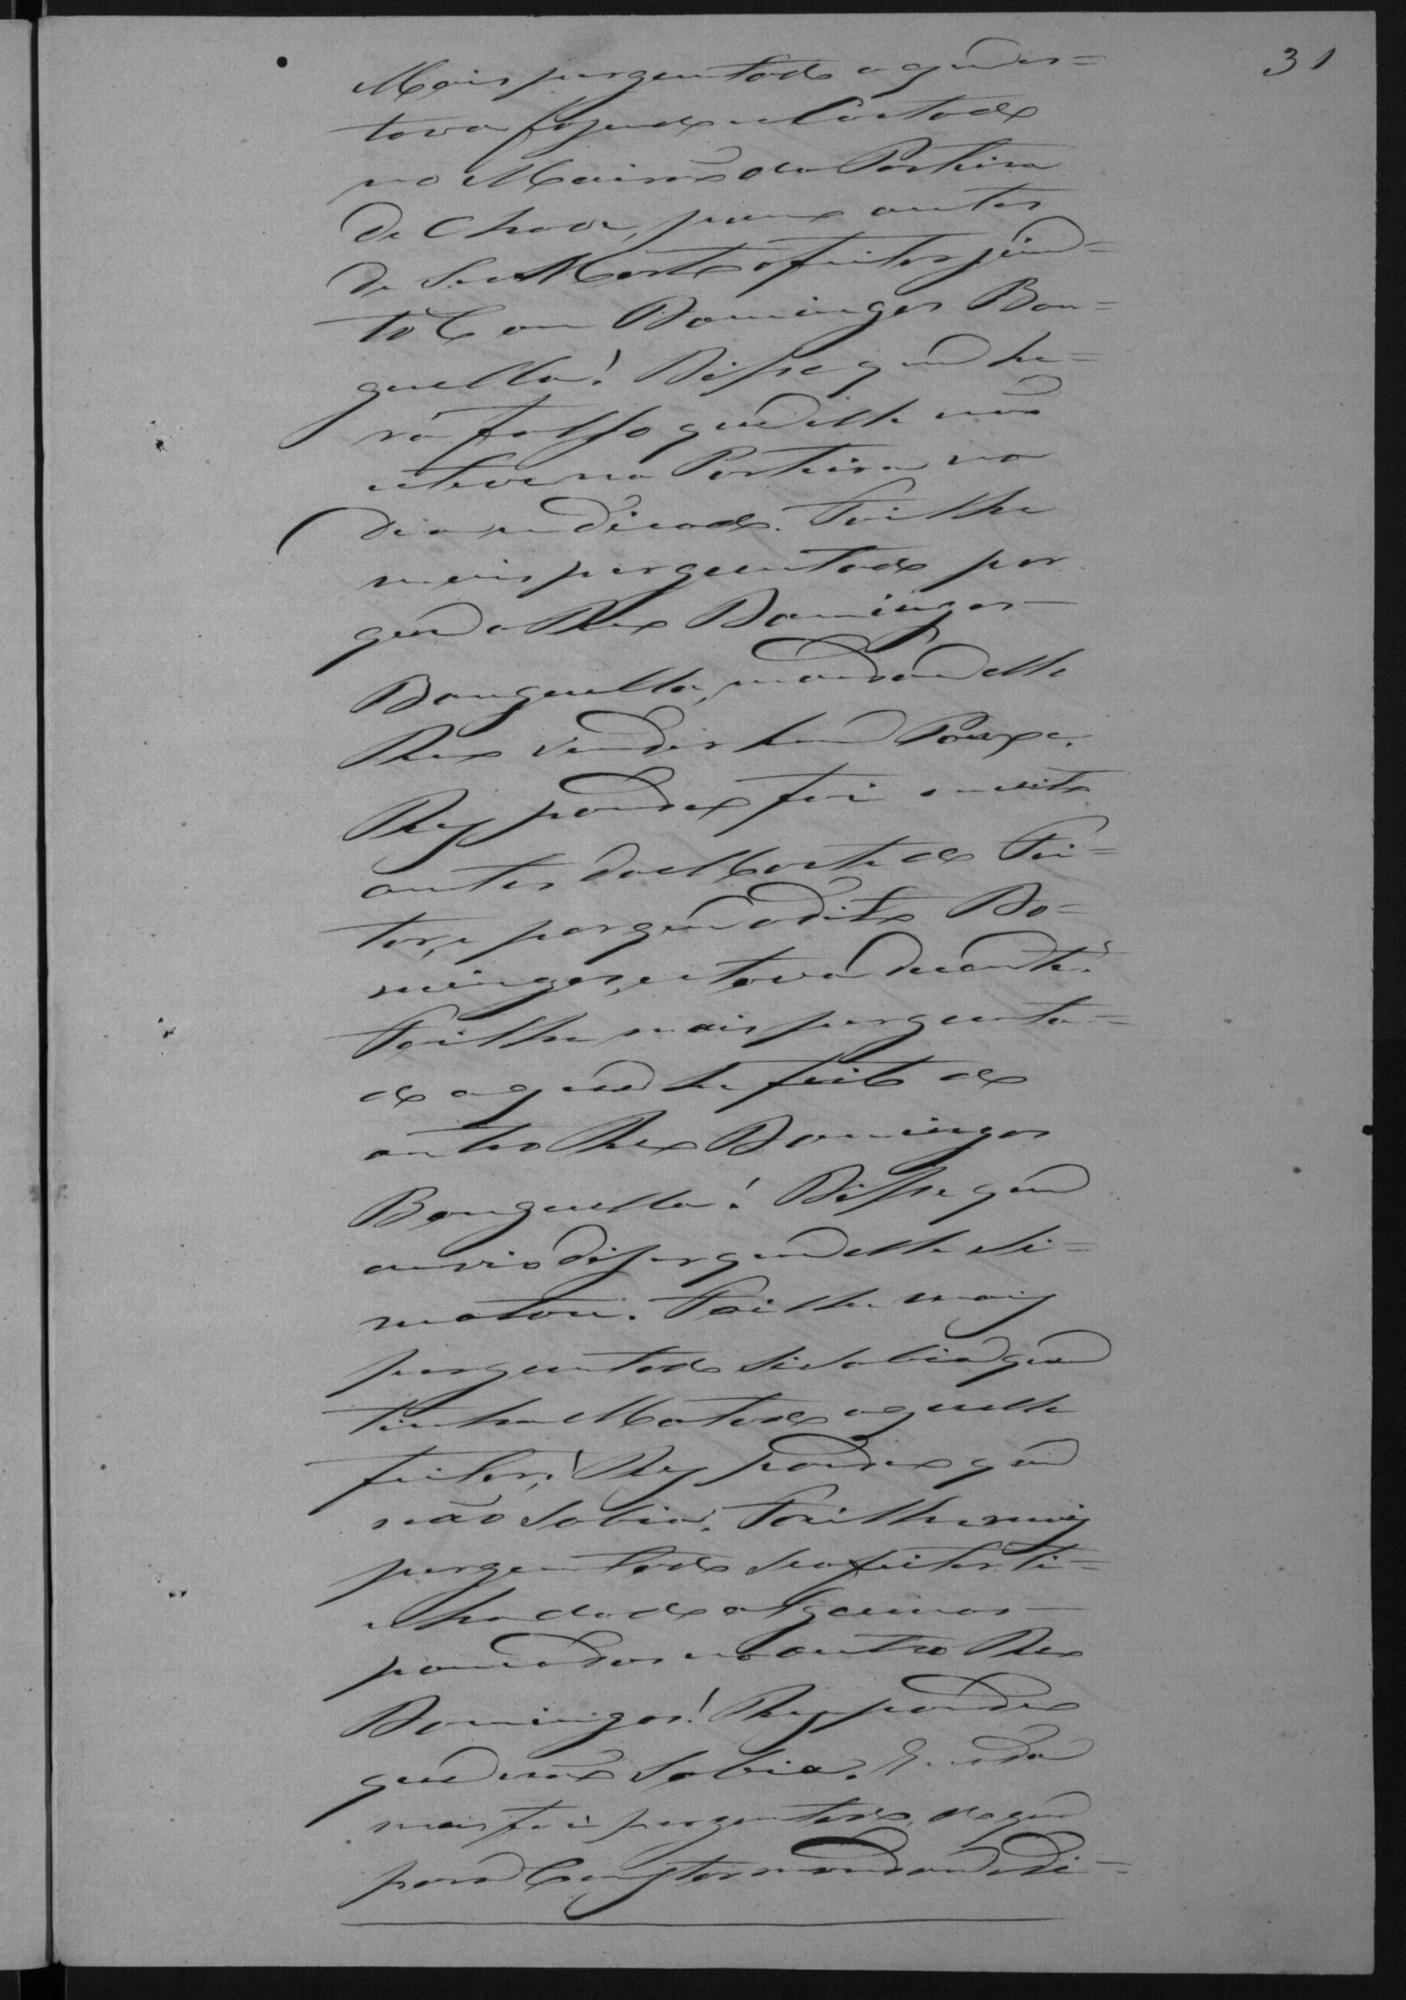 31
Mais perguntado o que es=
tava fazendo elle Costodo
no Mourão da Porteira
de Chave, pouco antes
de Sua Morte o feitor jun=
to Com Domingos Ban=
guella? Disse que he=
ra falso que elle não
esteve na Porteira no
dia indicado. Foi lhe
mais perguntado por
que o Reo Domingos
Banguella, mandou elle
Reo vender hum Poexe.
Respondeo foi muito
antes da Morte do Fei=
tor, e porque o dito Do=
mingos, estava duente.
Foi lhe mais pergunta=
do o que he feito do
outro Reo Domingos
Banguella? Disse que
ouvio diser que elle Si=
matou. Foi lhe mais
perguntado si sabia quem
tinha Matado aquelle
feitor? Respondeo que
não Sabia. Foi lhe mais
perguntado se o feitor ti=
nha dado algumas
pancadas no outro Reo
Domingos? Respondeo
que não Sabia. E nada
mais foi perguntado, do que
para Constar mandou o di=